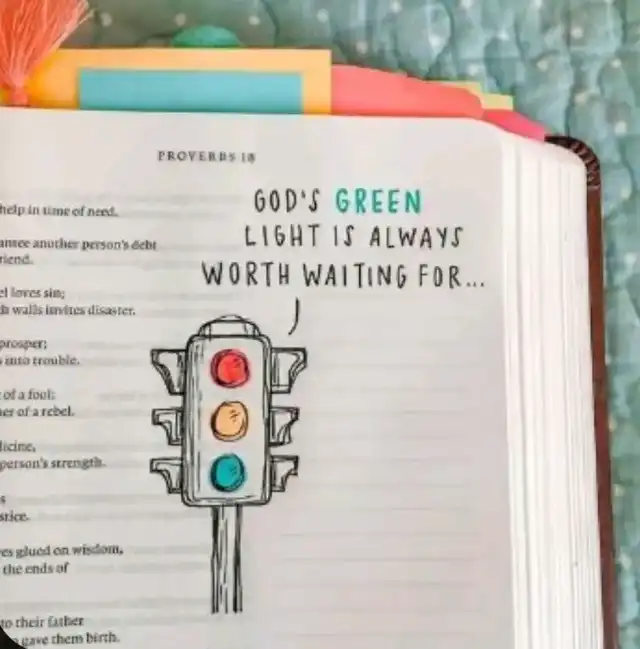 PROVERBS 18
GOD'S GREEN
LIGHT IS ALWAYS
WORTH WAITING FOR...
help in time of need.
another person's debt
riend.
el loves sin;
h walls invites disaster.
prosper;
into trouble.
of a fool;
er of a rebel.
dicine,
person's strength.
s
stice.
es glued on wisdom,
the ends of
to their father
gave them birth.